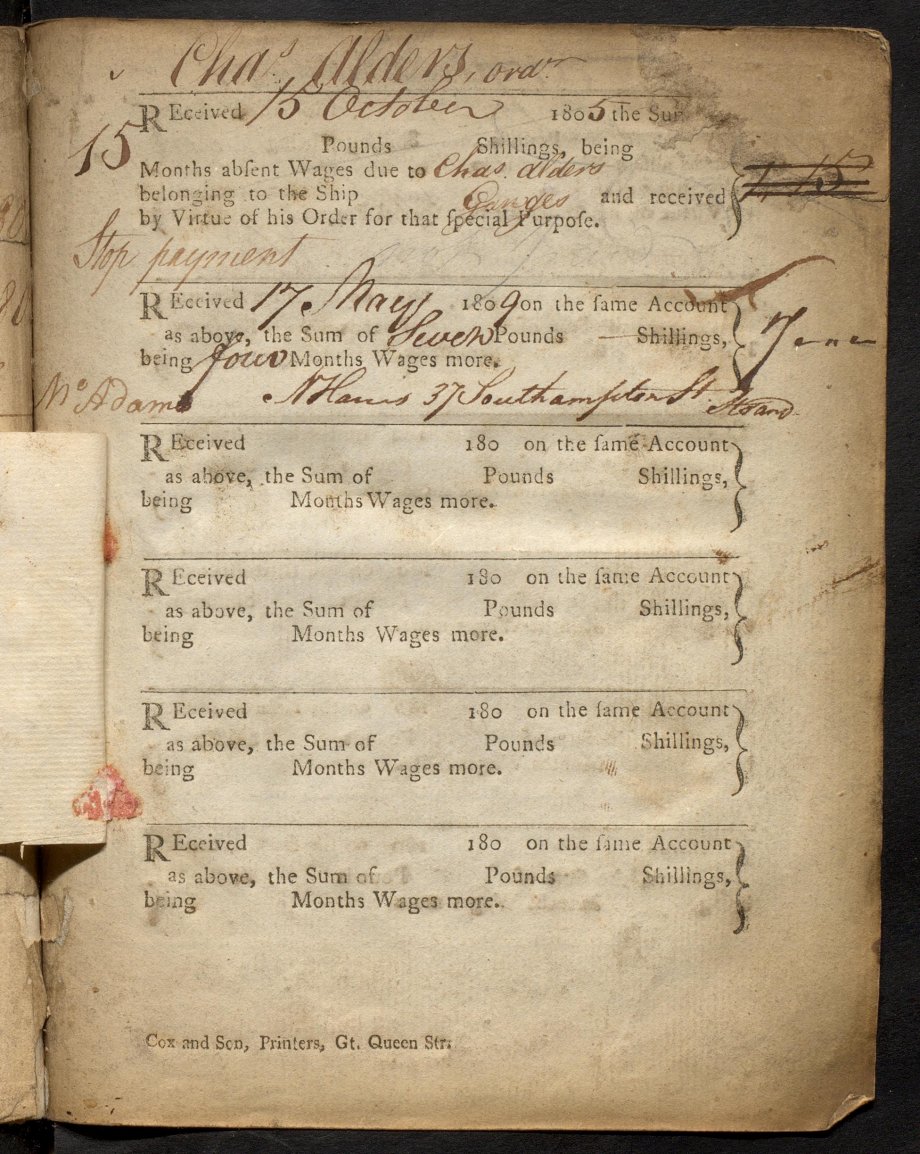 Chas Alders, ordr
REceived 15 October 1805 the Sum
15 Pounds Shillings, being
Months abſent Wages due to Chas. Alders
belonging to the Ship Ganges and received 1, 15
by Virtue of his Order for that ſpecial Purpoſe.
Stop payment
REceived 17 May 1809 on the ſame Account
as above, the Sum of Seven Pounds — Shillings, 7
being four Months Wages more.
Mo Adams N Harris 37 Southampton St. Strand
REceived 180 on the ſame Account
as above, the Sum of Pounds Shillings,
being Months Wages more.
REceived 180 on the ſame Account
as above, the Sum of Pounds Shillings,
being Months Wages more.
REceived 180 on the ſame Account
as above, the Sum of Pounds Shillings,
being Months Wages more.
REceived 180 on the ſame Account
as above, the Sum of Pounds Shillings,
being Months Wages more.
Cox and Son, Printers, Gt. Queen Str.